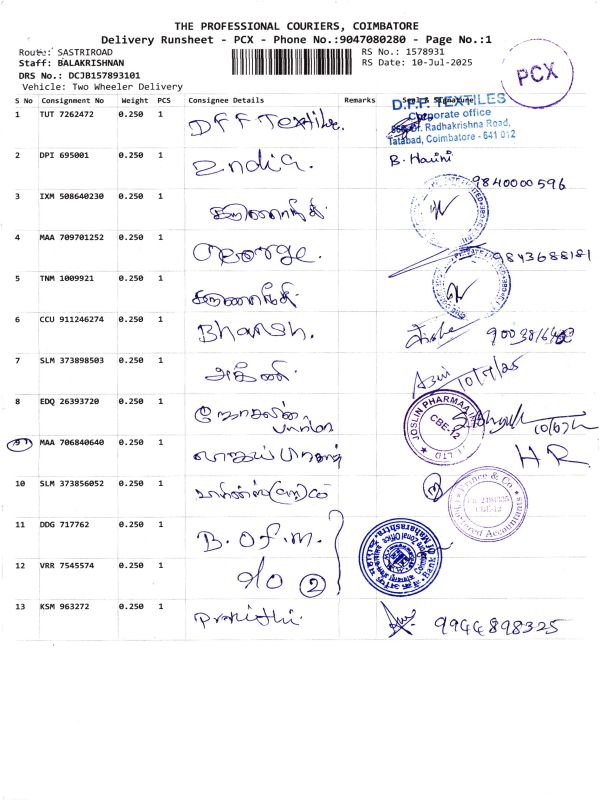 THE PROFESSIONAL COURIERS, COIMBATORE
Delivery Runsheet - PCX - Phone No.:9047080280 - Page No.:1
Route: SASTRIROAD
RS No.: 1578931
Staff: BALAKRISHNAN
RS Date: 10-Jul-2025
DRS No.: DCJB157893101
Vehicle: Two Wheeler Delivery
PCX
S No Consignment No Weight PCS Consignee Details Remarks Seal & Signature
1 TUT 7262472 0.250 1 DFF Textile.
D.F.F. TEXTILES
Corporate office
Dr. Radhakrishna Road,
Tatabad, Coimbatore - 641 012
2 DPI 695001 0.250 1 India. B. Harini
3 IXM 508640230 0.250 1 கருணாநிதி. 9840000596
4 MAA 709701252 0.250 1 George. 9843688181
5 TNM 1009921 0.250 1 கருணாநிதி.
6 CCU 911246274 0.250 1 Bharsh.
7 SLM 373898503 0.250 1 அக்னி. 10/7/25
8 EDQ 26393720 0.250 1 ஜோசலின் பார்மா
JOSLIN PHARMAA
CBE-12
9 MAA 706840640 0.250 1 HR
10 SLM 373856052 0.250 1
Prince & Co
CBE-12
Chartered Accountants
11 DDG 717762 0.250 1 B. of. M.
Bank of Maharashtra
12 VRR 7545574 0.250 1 2
13 KSM 963272 0.250 1 9944898325